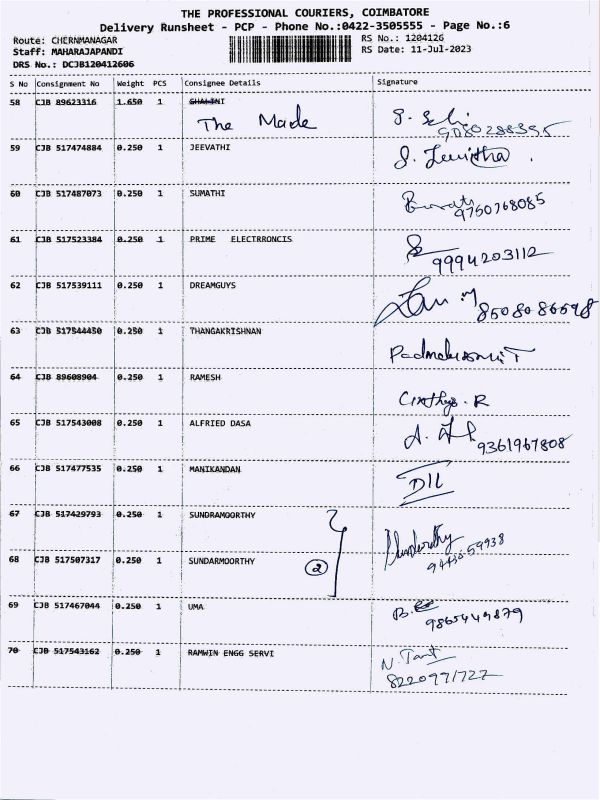 THE PROFESSIONAL COURIERS, COIMBATORE
Delivery Runsheet - PCP - Phone No.:0422-3505555 - Page No.:6
Route: CHERNMANAGAR RS No.: 1204126
Staff: MAHARAJAPANDI RS Date: 11-Jul-2023
DRS No.: DCJB120412606
S No Consignment No Weight PCS Consignee Details Signature
58 CJB 89623316 1.650 1 SHALINI
The Made
9080288395
59 CJB 517474884 0.250 1 JEEVATHI
60 CJB 517487073 0.250 1 SUMATHI
9750768085
61 CJB 517523384 0.250 1 PRIME ELECTRRONCIS
9994203112
62 CJB 517539111 0.250 1 DREAMGUYS
8508086698
63 CJB 517544450 0.250 1 THANGAKRISHNAN
64 CJB 89608904 0.250 1 RAMESH
65 CJB 517543008 0.250 1 ALFRIED DASA
9361967808
66 CJB 517477535 0.250 1 MANIKANDAN
67 CJB 517429793 0.250 1 SUNDRAMOORTHY
68 CJB 517507317 0.250 1 SUNDARMOORTHY
2
69 CJB 517467044 0.250 1 UMA
9865449879
70 CJB 517543162 0.250 1 RAMWIN ENGG SERVI
8220971727